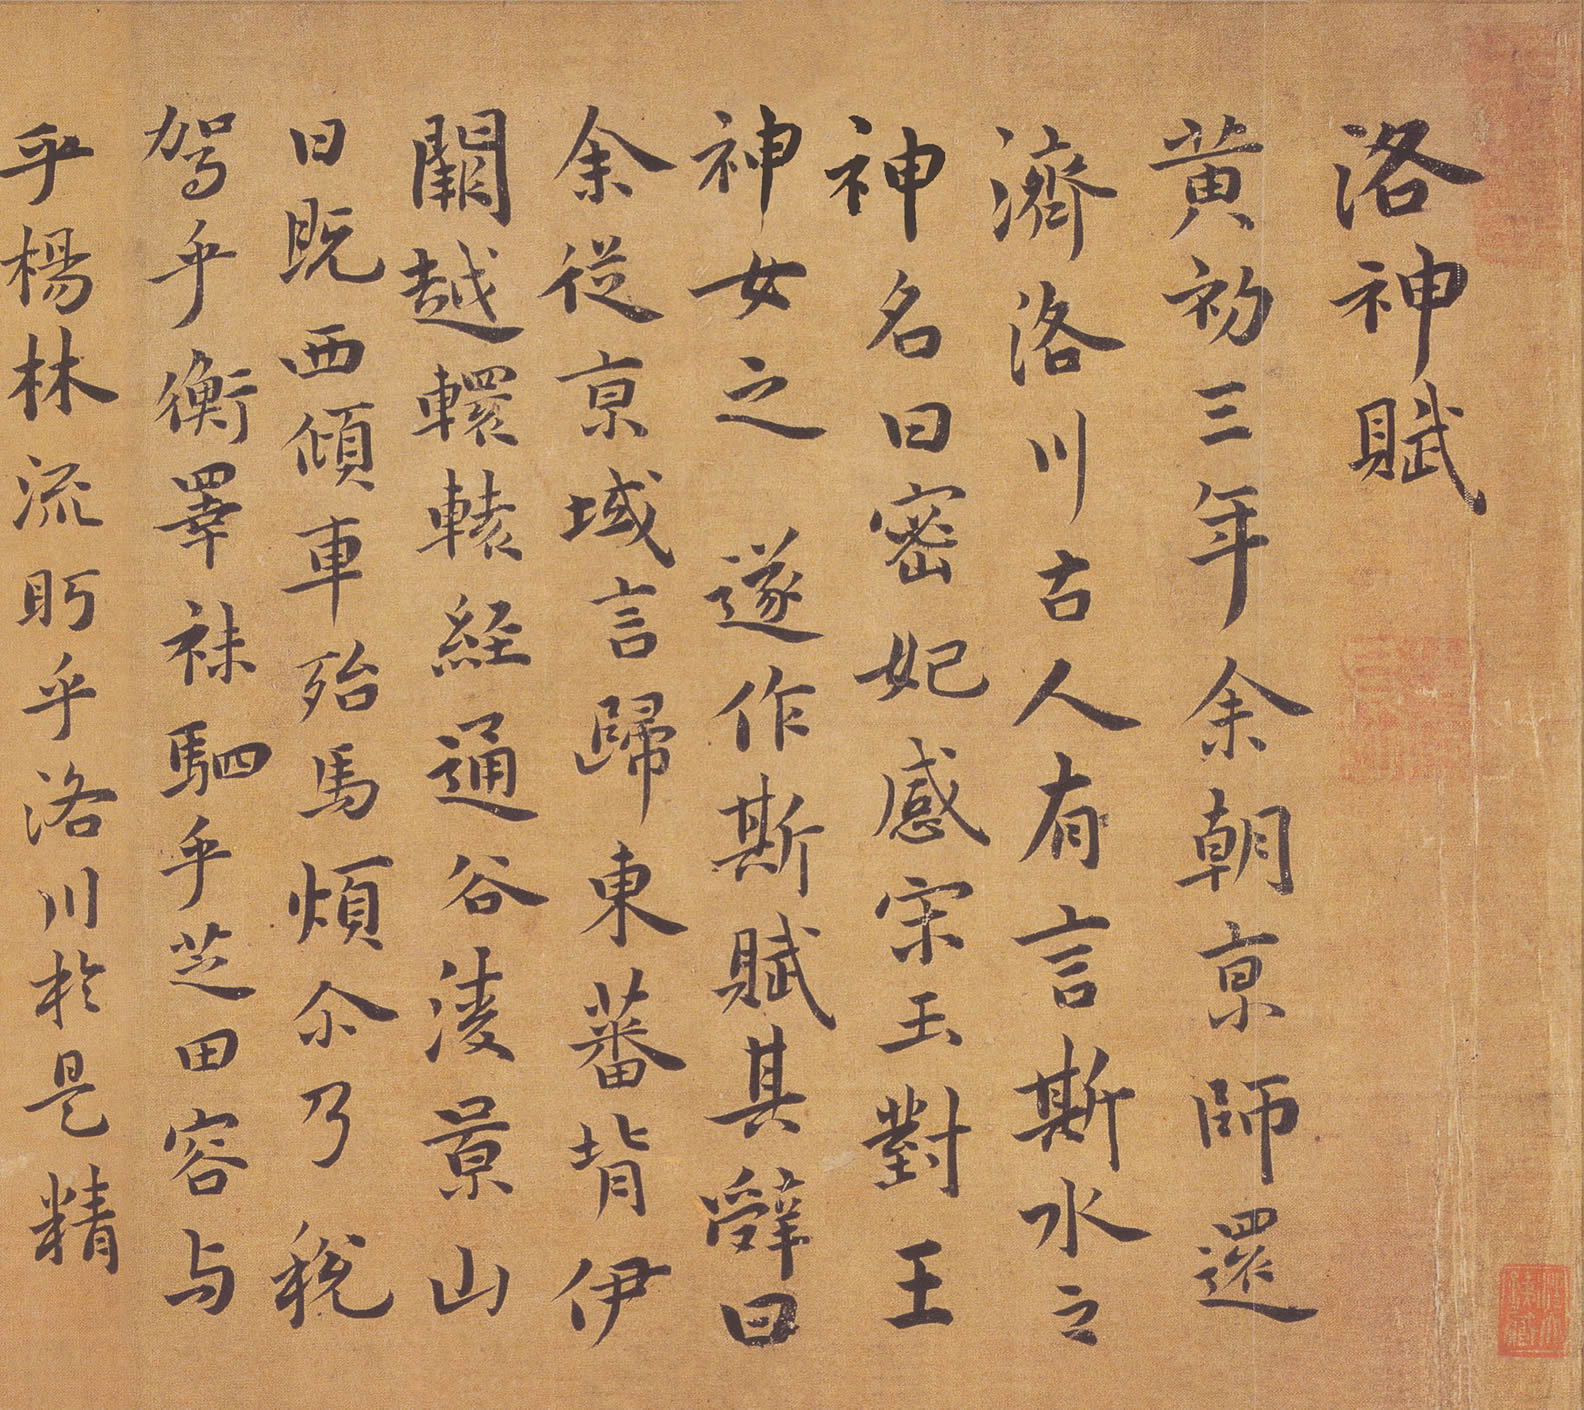 洛神賦
黄初三年余朝京師還
濟洛川古人有言斯水之
神名曰宻妃感宋玉對王
神女之遂作斯賦其辭曰
余從京域言歸東蕃背伊
闕越轘轅經通谷淩景山
日既西傾車殆馬煩尒乃税
駕乎衡睪袜駟乎芝田容与
乎楊林流眄乎洛川於是精